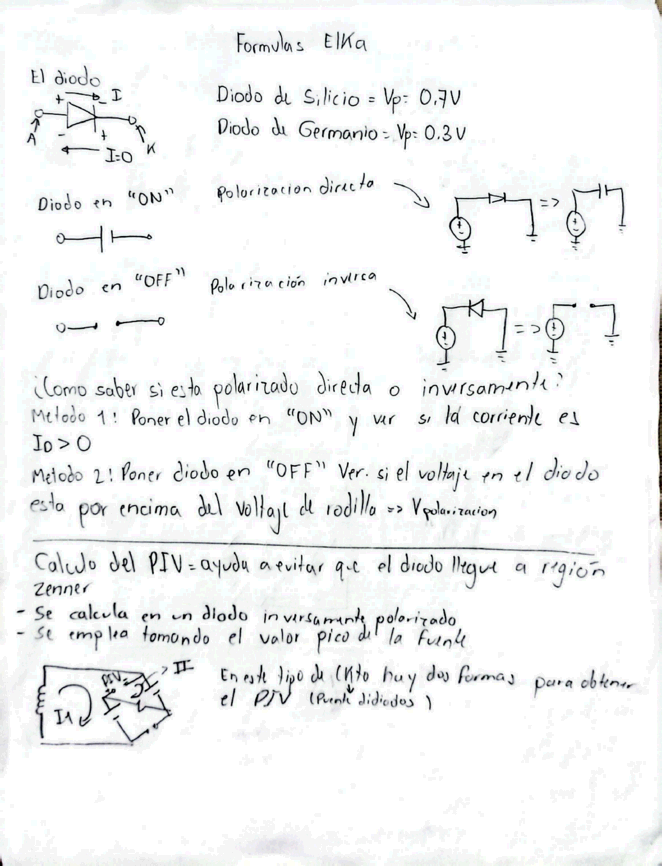 Formulas ElKa
El diodo
+ - I
A - + K
I=0
Diodo de Silicio = Vp= 0.7V
Diodo de Germanio = Vp= 0.3V
Diodo en "ON" Polarizacion directa
=>
+ -
+ -
Diodo en "OFF" Polarización inversa
=>
+ -
+ -
¿Como saber si esta polarizado directa o inversamente?
Metodo 1: Poner el diodo en "ON" y ver si la corriente es
ID > 0
Metodo 2: Poner diodo en "OFF" Ver. si el voltaje en el diodo
esta por encima del voltaje de rodilla => Vpolarizacion
Calculo del PIV = ayuda a evitar que el diodo llegue a región
zenner
- Se calcula en un diodo inversamente polarizado
- Se emplea tomando el valor pico de la fuente
I1 PIV II
En este tipo de Ckto hay dos formas para obtener
el PIV (Puente didiodos)